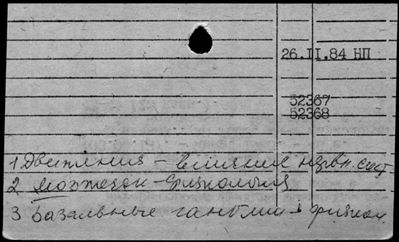 26.II.84 НП
52367
52368
1. Движения – влияние нервн. сист.
2 Мозжечок – физиология
3 Базальные ганглии – физиол.